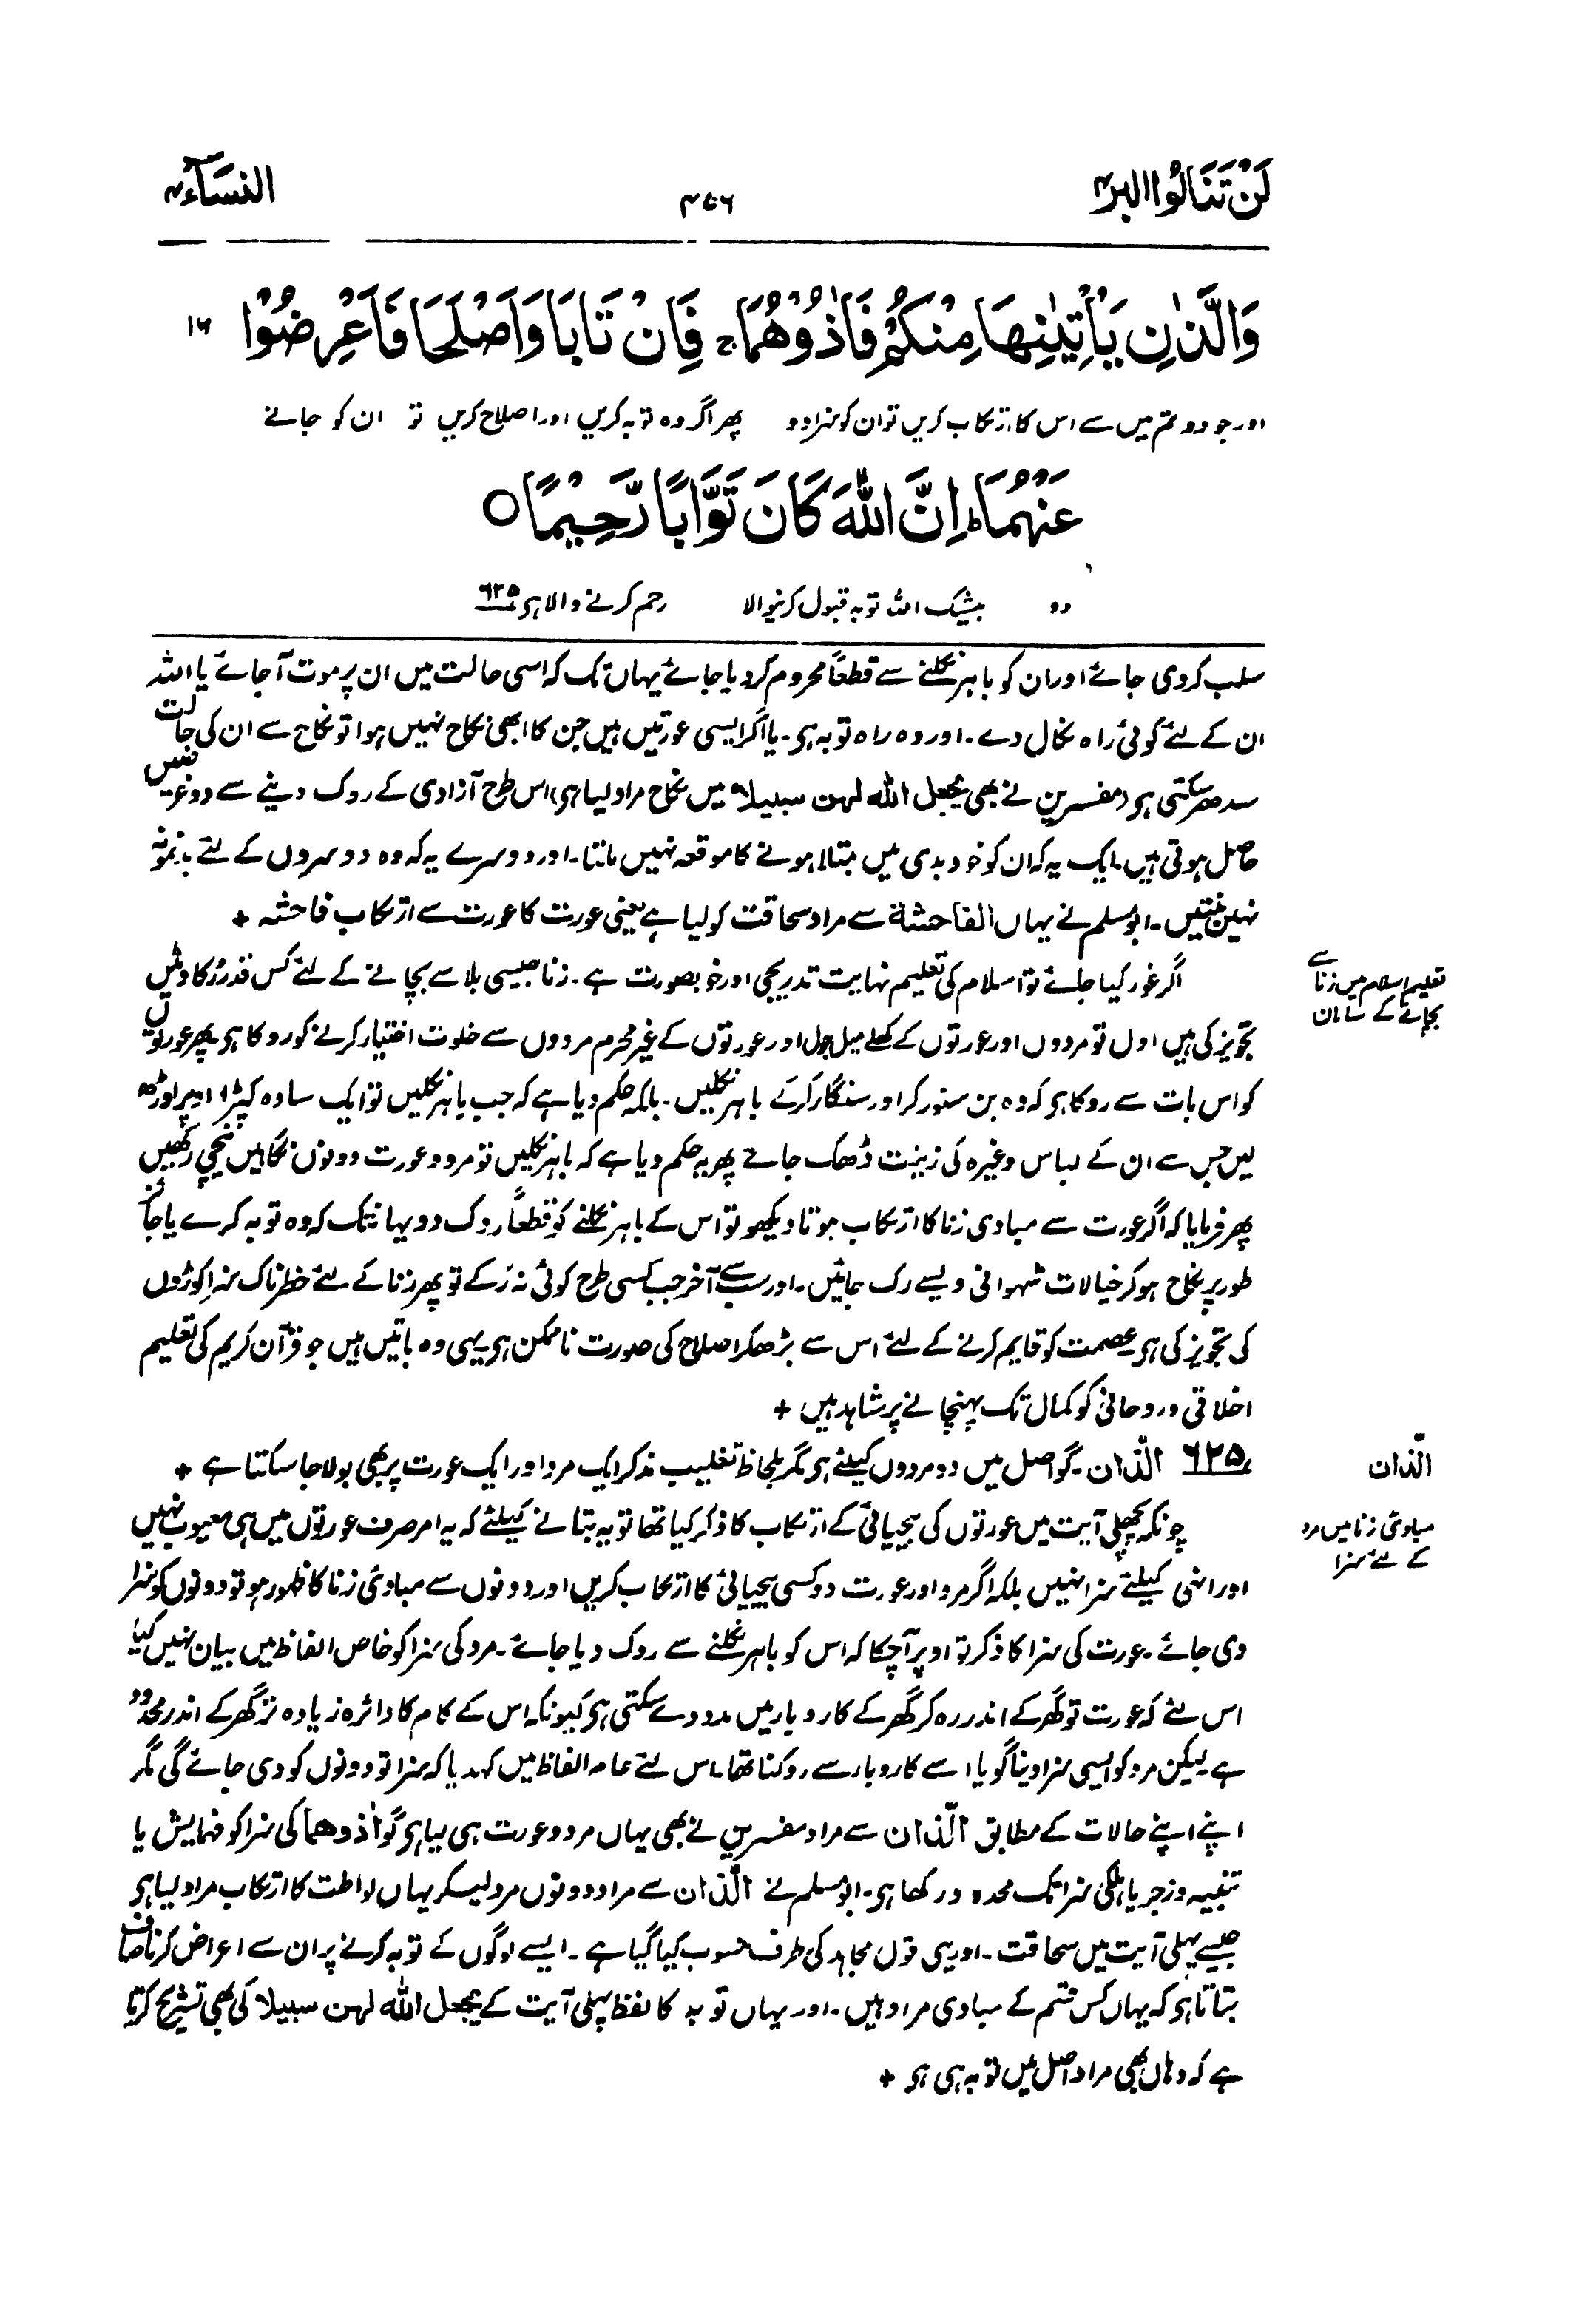 لَنْ تَنَالُوا البر ۴
۴۵۶
النساۤء ۴
وَالَّذٰنِ يَأْتِيٰنِهَا مِنْكُمْ فَاٰذُوْهُمَا ۚ فَاِنْ تَابَا وَاَصْلَحَا فَاَعْرِضُوْا
۱۶
اور جو دو تم میں سے اس کا ارتکاب کریں تو ان کو سزا دو پھر اگر وہ توبہ کریں اور اصلاح کریں تو ان کو جانے
عَنْهُمَا ؕ اِنَّ اللّٰهَ كَانَ تَوَّابًا رَّحِيْمًا ○
دو بیشک اللہ توبہ قبول کرنیوالا رحم کرنے والا ہی ۶۲۵
سلب کردی جائے اور ان کو باہر نکلنے سے قطعاً محروم کردیا جائے یہاں تک کہ اسی حالت میں ان پر موت آجائے یا اللہ
ان کے لئے کوئی راہ نکال دے۔ اور وہ راہ توبہ ہی۔ یا اگر ایسی عورتیں ہیں جن کا ابھی نکاح نہیں ہوا تو نکاح سے ان کی حالت
سدھر سکتی ہی (مفسرین نے بھی یجعل اللہ لھن سبیلا میں نکاح مراد لیا ہی) اس طرح آزادی کے روک دینے سے دو غرضیں
حاصل ہوتی ہیں۔ ایک یہ کہ ان کو خود بدی میں مبتلا ہونے کا موقعہ نہیں ملتا۔ اور دوسرے یہ کہ وہ دوسروں کے لئے بدنمونہ
نہیں بنتیں۔ ابومسلم نے یہاں الفاحشة سے مراد سحاقت کو لیا ہے یعنی عورت کا عورت سے ارتکاب فاحشہ +
تعلیم اسلام میں زنا سے
بچانے کے سامان
اگر غور کیا جائے تو اسلام کی تعلیم نہایت تدریجی اور خوبصورت ہے۔ زنا جیسی بلا سے بچانے کے لئے کس قدر رکاوٹیں
تجویز کی ہیں اول تو مردوں اور عورتوں کے کھلے میل جول اور عورتوں کے غیر محرم مردوں سے خلوت اختیار کرنے کو روکا ہی۔ پھر عورتوں
کو اس بات سے روکا ہی کہ وہ بن سنور کر اور سنگار کرکے باہر نکلیں۔ بلکہ حکم دیا ہے کہ جب باہر نکلیں تو ایک سادہ کپڑا اوپر اوڑھ
لیں جس سے ان کے لباس وغیرہ کی زینت ڈھک جائے پھر یہ حکم دیا ہے کہ باہر نکلیں تو مرد و عورت دونوں نگاہیں نیچی رکھیں
پھر فرمایا کہ اگر عورت سے مبادی زنا کا ارتکاب ہوتا دیکھو تو اس کے باہر نکلنے کو قطعاً روک دو یہانتک کہ وہ توبہ کرے یا جائز
طور پر نکاح ہو کر خیالات شہوانی ویسے رک جائیں۔ اور سب سے آخر جب کسی طرح کوئی نہ رکے تو پھر زنا کے لئے خطرناک سزا کوڑوں
کی تجویز کی ہی عصمت کو قایم کرنے کے لئے اس سے بڑھکر اصلاح کی صورت ناممکن ہی۔ یہی وہ باتیں ہیں جو قرآن کریم کی تعلیم
اخلاقی و روحانی کو کمال تک پہنچانے پر شاہد ہیں +
الّذان
۶۲۵ الّذان۔ گو اصل میں دو مردوں کیلئے ہی مگر بلحاظ تغلیب مذکر ایک مرد اور ایک عورت پر بھی بولا جا سکتا ہے +
مبادئ زنا میں مرد
کے لئے سزا
چونکہ پچھلی آیت میں عورتوں کی بیحیائی کے ارتکاب کا ذکر کیا تھا تو یہ بتانے کیلئے کہ یہ امر صرف عورتوں میں ہی معیوب نہیں
اور انہی کیلئے سزا نہیں بلکہ اگر مرد اور عورت دو کسی بیحیائی کا ارتکاب کریں اور دونوں سے مبادئ زنا کا ظہور ہو تو دونوں کو سزا
دی جائے۔ عورت کی سزا کا ذکر تو اوپر آچکا کہ اس کو باہر نکلنے سے روک دیا جائے۔ مرد کی سزا کو خاص الفاظ میں بیان نہیں کیا
اس لئے کہ عورت تو گھر کے اندر رہ کر گھر کے کاروبار میں مدد دے سکتی ہی کیونکہ اس کے کام کا دائرہ زیادہ تر گھر کے اندر محدود
ہے لیکن مرد کو ایسی سزا دینا گویا اسے کاروبار سے روکنا تھا۔ اس لئے عام الفاظ میں کہدیا کہ سزا تو دونوں کو دی جائے گی مگر
اپنے اپنے حالات کے مطابق الّذان سے مراد مفسرین نے بھی یہاں مرد و عورت ہی لیا ہی گو اٰذوھما کی سزا کو فہمایش یا
تنبیہ و زجر یا ہلکی سزا تک محدود رکھا ہی۔ ابومسلم نے الّذان سے مراد دونوں مرد لیکر یہاں لواطت کا ارتکاب مراد لیا ہی
جیسے پہلی آیت میں سحاقت۔ اور یہی قول مجاہد کی طرف منسوب کیا گیا ہے۔ ایسے لوگوں کے توبہ کرنے پر ان سے اعراض کرنا صاف
بتاتا ہی کہ یہاں کس قسم کے مبادی مراد ہیں۔ اور یہاں توبہ کا لفظ پہلی آیت کے یجعل اللہ لھن سبیلا کی بھی تشریح کرتا
ہے کہ وہاں بھی مراد اصل میں توبہ ہی ہی +